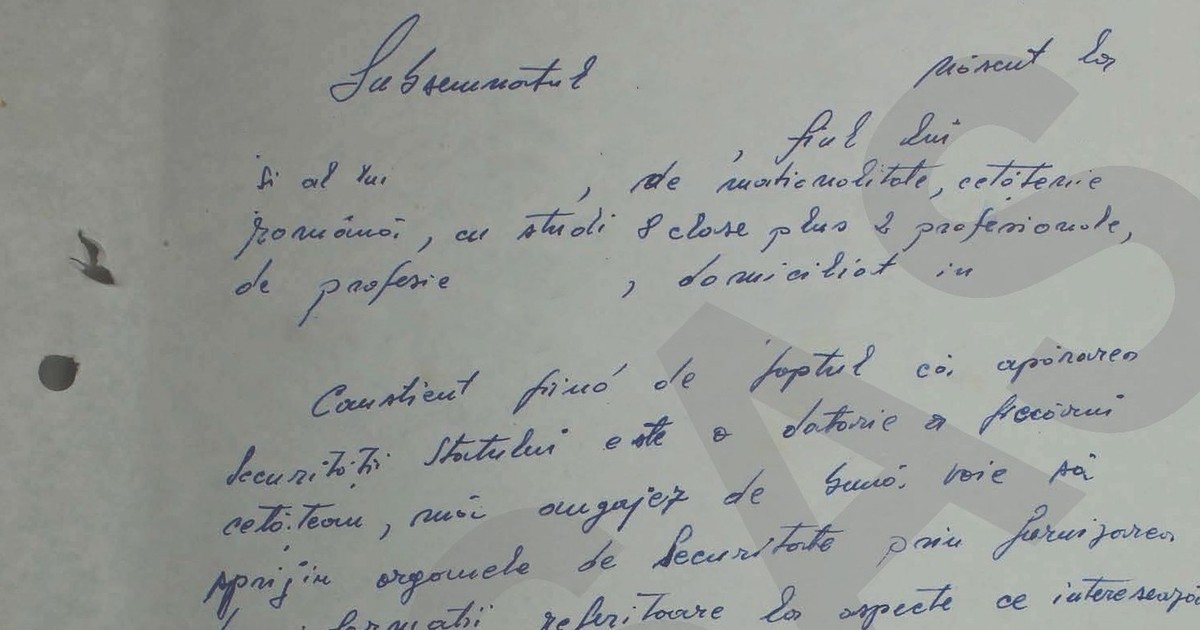 Subsemnatul născut la
, fiul lui
și al lui , de naționalitate, cetățenie
română, cu studi 8 clase plus 2 profesionale,
de profesie , domiciliat în
Conștient fiind de faptul că, apărarea
Securității Statului este o datorie a fiecărui
cetățean, mă angajez de bună voie să
sprijin organele de Securitate prin furnizarea
informații referitoare la aspecte ce interesează